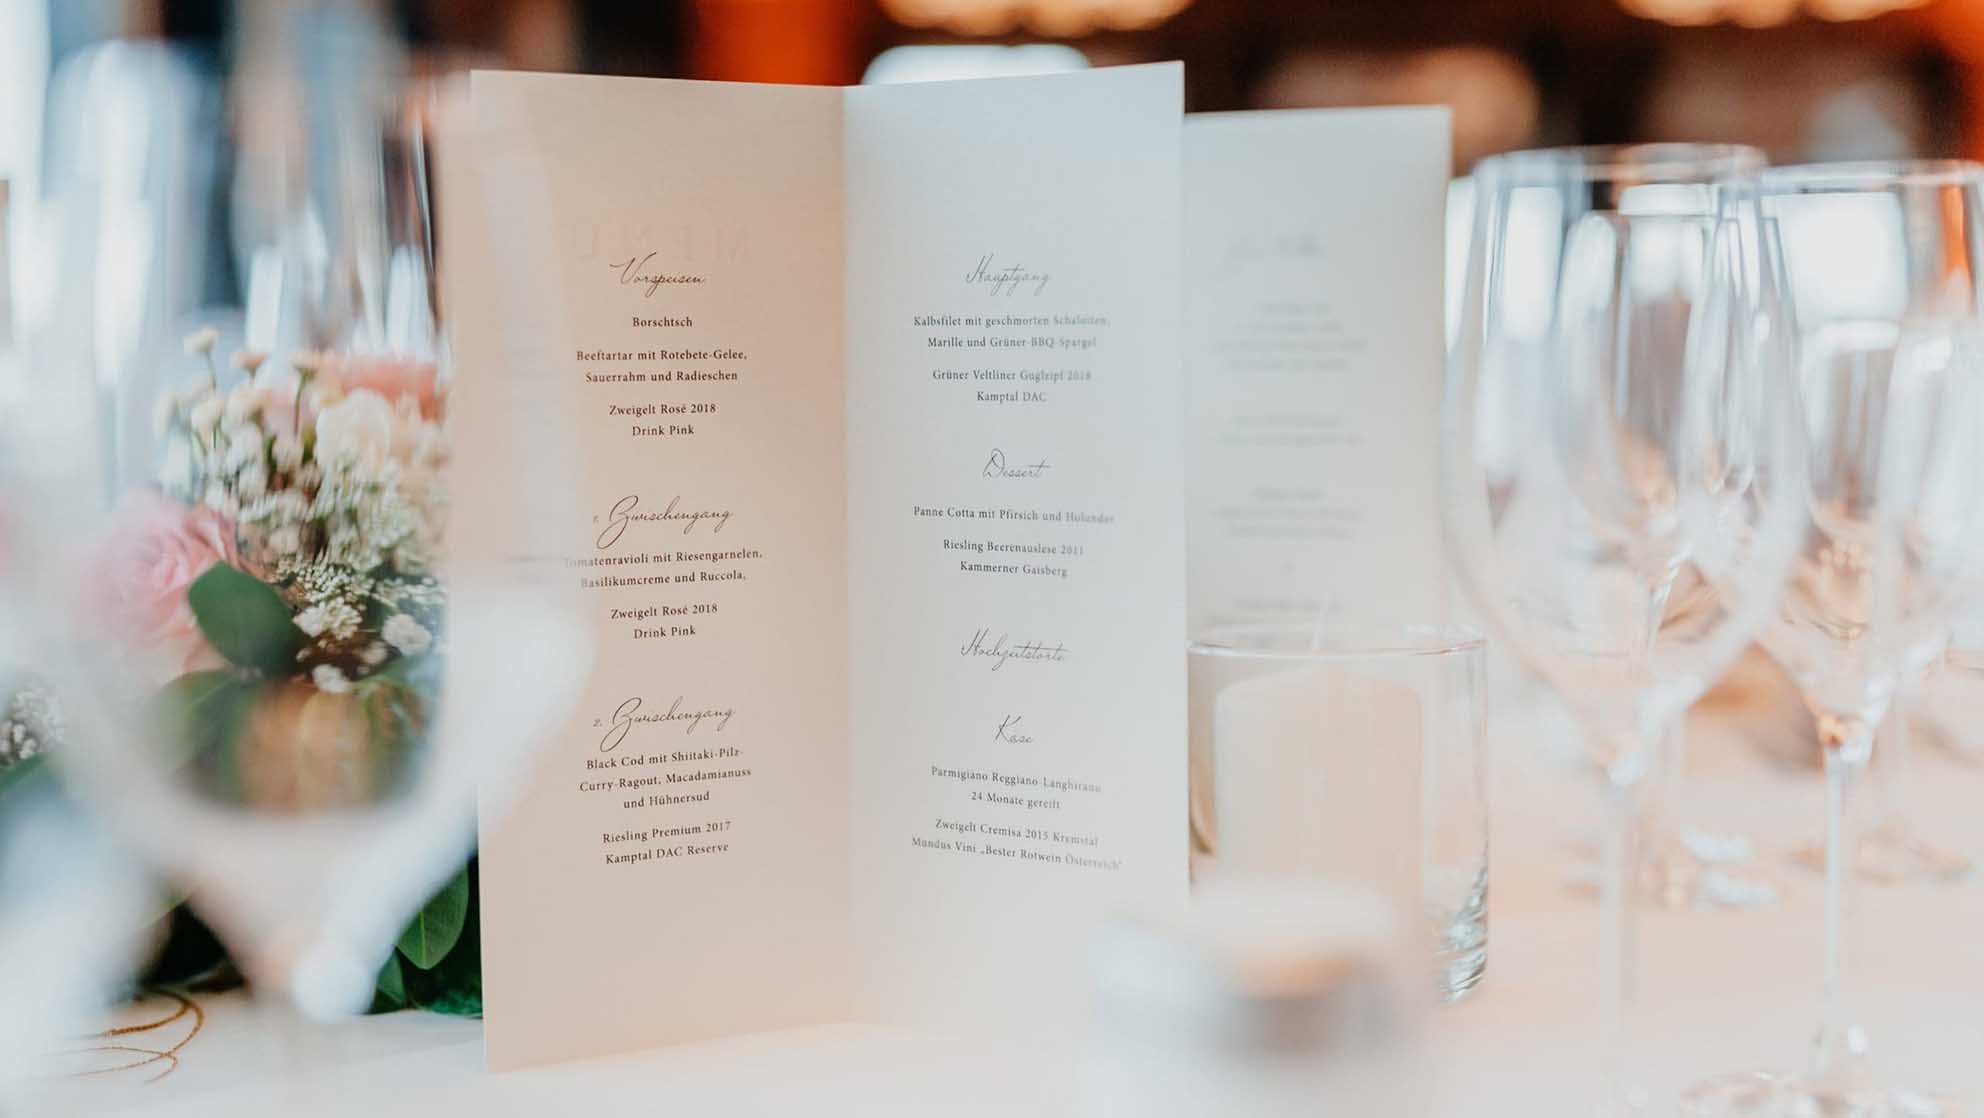 Vorspeisen
Borschtsch
Beeftartar mit Rotebete-Gelee,
Sauerrahm und Radieschen
Zweigelt Rosé 2018
Drink Pink
1. Zwischengang
Tomatenravioli mit Riesengarnelen,
Basilikumcreme und Ruccola,
Zweigelt Rosé 2018
Drink Pink
2. Zwischengang
Black Cod mit Shiitaki-Pilz-
Curry-Ragout, Macadamianuss
und Hühnersud
Riesling Premium 2017
Kamptal DAC Reserve
Hauptgang
Kalbsfilet mit geschmorten Schalotten,
Marille und Grüner-BBQ-Spargel
Grüner Veltliner Guglzipf 2018
Kamptal DAC
Dessert
Panne Cotta mit Pfirsich und Holunder
Riesling Beerenauslese 2011
Kammerner Gaisberg
Hochzeitstorte
Käse
Parmigiano Reggiano-Langhirano
24 Monate gereift
Zweigelt Cremisa 2015 Kremstal
Mundus Vini „Bester Rotwein Österreich"
MENU